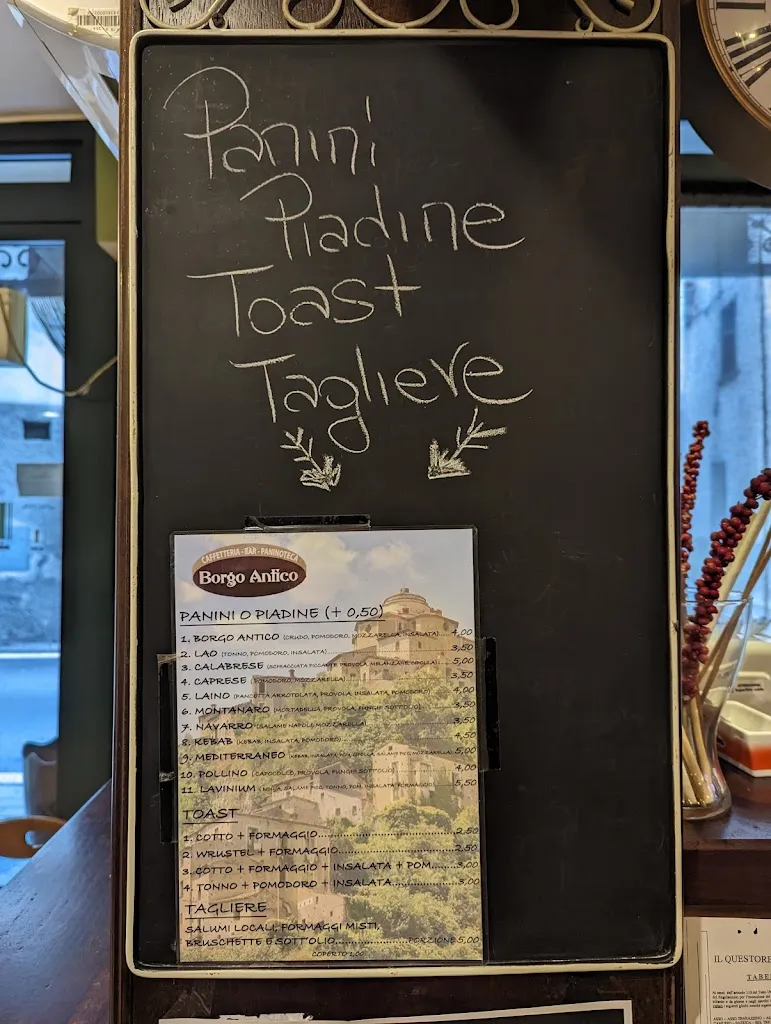 Panini
Piadine
Toast
Tagliere
CAFFETTERIA - BAR - PANINOTECA
Borgo Antico
PANINI O PIADINE (+ 0,50)
1. BORGO ANTICO (CRUDO, POMODORO, MOZZARELLA, INSALATA)....4,00
2. LAO (TONNO, POMODORO, INSALATA)....3,50
3. CALABRESE (SCHIACCIATA PICCANTE, PROVOLA, MELANZANE, CIPOLLA)....5,00
4. CAPRESE (POMODORO, MOZZARELLA)....3,50
5. LAINO (PANCETTA ARROTOLATA, PROVOLA, INSALATA, POMODORO)....4,00
6. MONTANARO (MORTADELLA, PROVOLA, FUNGHI SOTT'OLIO)....3,50
7. NAVARRO (SALAME NAPOLI, MOZZARELLA)....3,50
8. KEBAB (KEBAB, INSALATA, POMODORO)....4,50
9. MEDITERRANEO 5,00
10. POLLINO (CAPOCOLLO, PROVOLA, FUNGHI SOTT'OLIO)....4,00
11. LAVINIUM 5,50
TOAST
1. COTTO + FORMAGGIO....2,50
2. WRUSTEL + FORMAGGIO....2,50
3. COTTO + FORMAGGIO + INSALATA + POM....3,00
4. TONNO + POMODORO + INSALATA....3,00
TAGLIERE
SALUMI LOCALI, FORMAGGI MISTI,
BRUSCHETTE E SOTT'OLIO....PORZIONE 5,00
COPERTO 1,00
IL QUESTORE
TABE